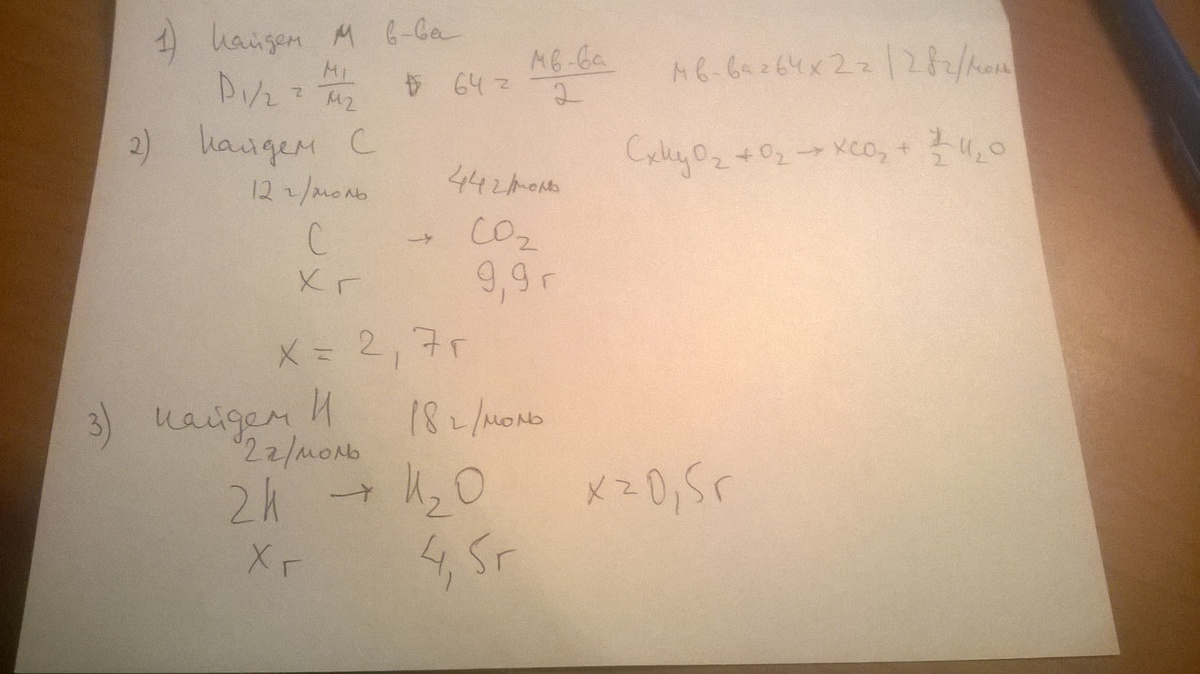 1) Найдем М в-ва
D1/2 = M1/M2 64 = Мв-ва/2 Мв-ва = 64 x 2 = 128 г/моль
2) Найдем С CxHyO2 + O2 → xCO2 + y/2 H2O
12 г/моль 44 г/моль
C → CO2
X г 9,9 г
x = 2,7 г
3) Найдем H 18 г/моль
2 г/моль
2H → H2O x = 0,5 г
X г 4,5 г